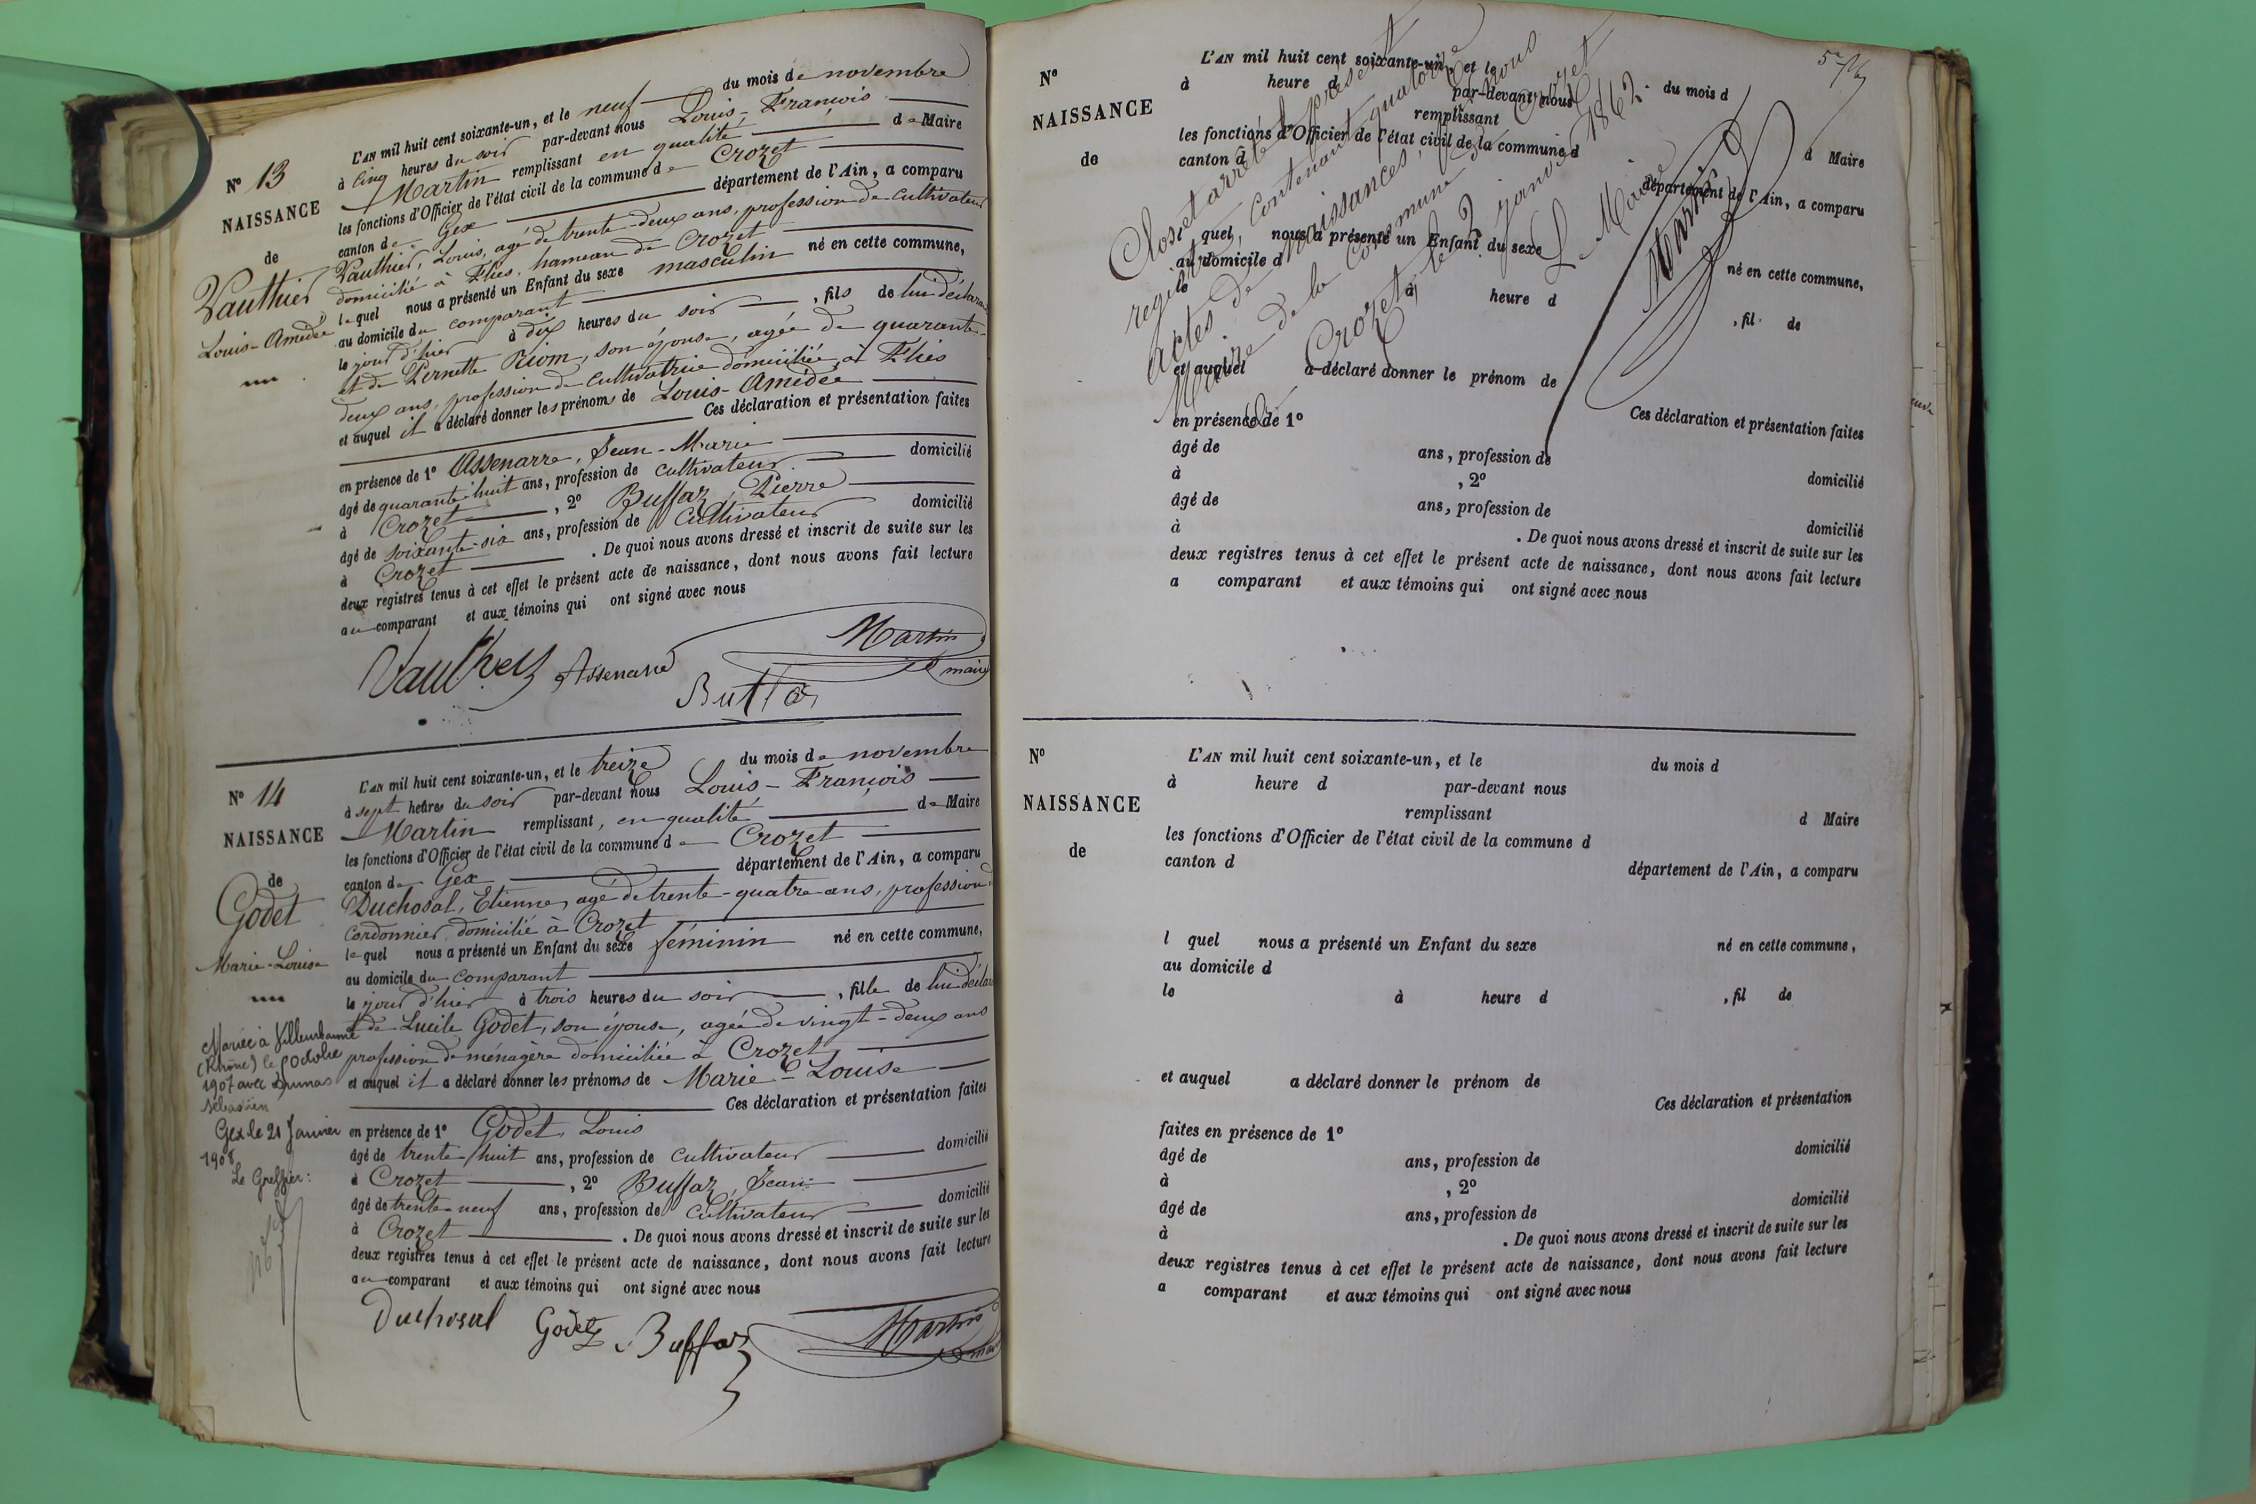 N° 13
NAISSANCE
de
Vauthier
Louis-Amédée
L'AN mil huit cent soixante-un, et le neuf du mois de novembre
à cinq heures du soir par-devant nous Louis-François
Martin remplissant en qualité de Maire
les fonctions d'Officier de l'état civil de la commune de Crozet
canton de Gex département de l'Ain, a comparu
Vauthier, Louis, agé de trente-deux ans, profession de cultivateur
domicilié à Flies, hameau de Crozet
lequel nous a présenté un Enfant du sexe masculin né en cette commune,
au domicile du comparant
le jour d'hier à dix heures du soir, fils de lui déclarant
et de Pernette Riom, son épouse, agée de quarante-
deux ans, profession de cultivatrice domiciliée à Flies
et auquel il a déclaré donner les prénoms de Louis-Amédée
Ces déclaration et présentation faites
en présence de 1° Assenarre, Jean-Marie
âgé de quarante-huit ans, profession de cultivateur domicilié
à Crozet, 2° Buffaz, Pierre
âgé de soixante-six ans, profession de cultivateur domicilié
à Crozet. De quoi nous avons dressé et inscrit de suite sur les
deux registres tenus à cet effet le présent acte de naissance, dont nous avons fait lecture
au comparant et aux témoins qui ont signé avec nous
Assenarre
Martin
maire
Buffaz
N° 14
NAISSANCE
de
Godet
Marie-Louise
Mariée à Villeurbanne
(Rhône) le 5 Octobre
1907 avec
Sébastien
Gex le 21 Janvier
1908
Le Greffier:
L'AN mil huit cent soixante-un, et le treize du mois de novembre
à sept heures du soir par-devant nous Louis-François
Martin remplissant, en qualité de Maire
les fonctions d'Officier de l'état civil de la commune de Crozet
canton de Gex département de l'Ain, a comparu
Duchosal, Etienne, agé de trente-quatre ans, profession
cordonnier domicilié à Crozet
lequel nous a présenté un Enfant du sexe féminin né en cette commune,
au domicile du comparant
le jour d'hier à trois heures du soir, fille de lui déclar
et de Lucile Godet, son épouse, agée de vingt-deux ans
profession de ménagère domiciliée à Crozet
et auquel il a déclaré donner les prénoms de Marie-Louise
Ces déclaration et présentation faites
en présence de 1° Godet, Louis
âgé de trente-huit ans, profession de cultivateur domicilié
à Crozet, 2° Buffaz, Jean
âgé de trente-neuf ans, profession de cultivateur domicilié
à Crozet. De quoi nous avons dressé et inscrit de suite sur les
deux registres tenus à cet effet le présent acte de naissance, dont nous avons fait lecture
au comparant et aux témoins qui ont signé avec nous
Duchosal Godet Buffaz
Martin
N°
NAISSANCE
de
L'AN mil huit cent soixante-un, et le du mois d
à heure d par-devant nous
remplissant d Maire
les fonctions d'Officier de l'état civil de la commune d
canton d département de l'Ain, a comparu
l quel nous a présenté un Enfant du sexe né en cette commune,
au domicile d
le à heure d , fil de
et auquel a déclaré donner le prénom de
Ces déclaration et présentation faites
en présence de 1°
âgé de ans, profession de domicilié
à , 2°
âgé de ans, profession de domicilié
à . De quoi nous avons dressé et inscrit de suite sur les
deux registres tenus à cet effet le présent acte de naissance, dont nous avons fait lecture
a comparant et aux témoins qui ont signé avec nous
Clos et arrêté le présent
registre, contenant quatorze
actes de naissances, par nous
Maire de la commune de Crozet
à Crozet, le 2 janvier 1862.
Le Maire
Martin
N°
NAISSANCE
de
L'AN mil huit cent soixante-un, et le du mois d
à heure d par-devant nous
remplissant d Maire
les fonctions d'Officier de l'état civil de la commune d
canton d département de l'Ain, a comparu
l quel nous a présenté un Enfant du sexe né en cette commune,
au domicile d
le à heure d , fil de
et auquel a déclaré donner le prénom de
Ces déclaration et présentation
faites en présence de 1°
âgé de ans, profession de domicilié
à , 2°
âgé de ans, profession de domicilié
à . De quoi nous avons dressé et inscrit de suite sur les
deux registres tenus à cet effet le présent acte de naissance, dont nous avons fait lecture
a comparant et aux témoins qui ont signé avec nous